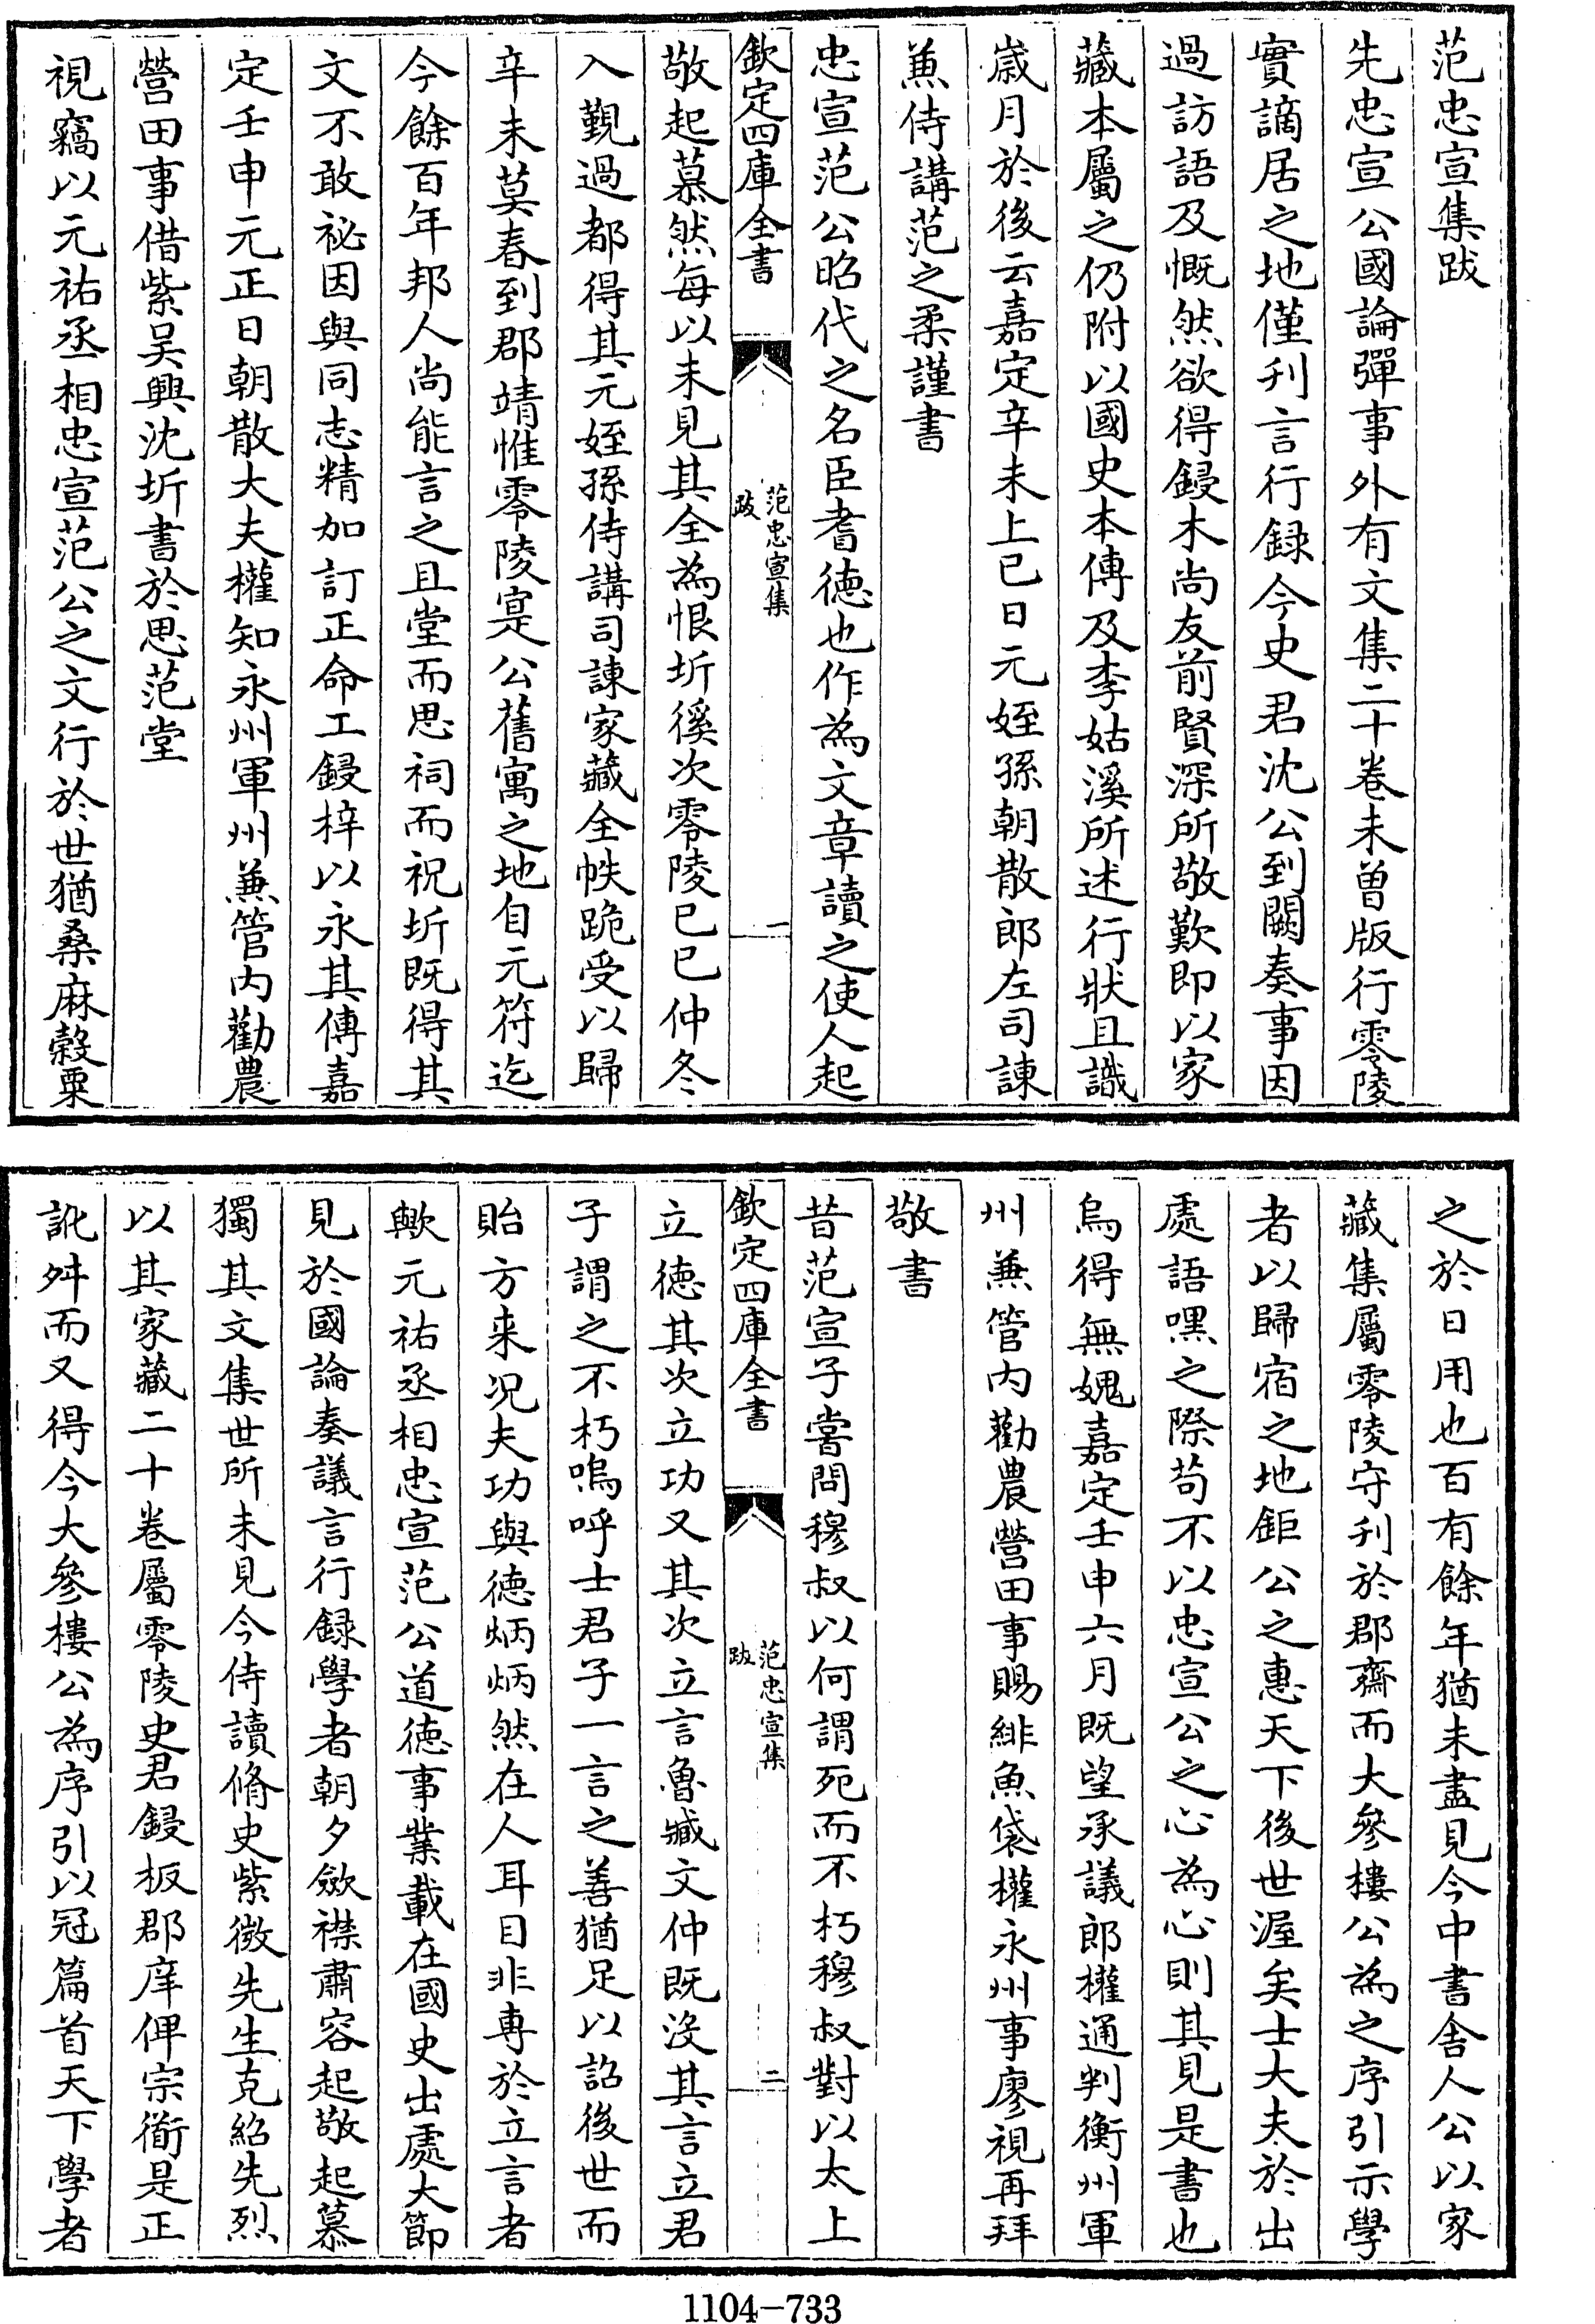 范忠宣集跋
先忠宣公國論彈事外有文集二十卷未曾版行零陵
實謫居之地僅刋言行録今史君沈公到闕奏事因
過訪語及慨然欲得鋟木尚友前賢深所敬歎即以家
藏本屬之仍附以國史本傳及李姑溪所述行狀且識
嵗月於後云嘉定辛未上巳日元姪孫朝散郎左司諫
兼侍講范之柔謹書
忠宣范公昭代之名臣耆徳也作為文章讀之使人起
欽定四庫全書
范忠宣集
跋
一
敬起慕然每以未見其全為恨圻徯次零陵已巳仲冬
入覲過都得其元姪孫侍講司諫家藏全帙跪受以歸
辛未莫春到郡靖惟零陵寔公舊寓之地自元符迄
今餘百年邦人尚能言之且堂而思祠而祝圻既得其
文不敢祕因與同志精加訂正命工鋟梓以永其傳嘉
定壬申元正日朝散大夫權知永州軍州兼管内勸農
營田事借紫吴興沈圻書於思范堂
視竊以元祐丞相忠宣范公之文行於世猶桑麻榖粟
之於日用也百有餘年猶未盡見今中書舍人公以家
藏集屬零陵守刋於郡齋而大參樓公為之序引示學
者以歸宿之地鉅公之惠天下後世渥矣士大夫於出
處語嘿之際苟不以忠宣公之心為心則其見是書也
烏得無媿嘉定壬申六月既望承議郎權通判衡州軍
州兼管内勸農營田事賜緋魚袋權永州事廖視再拜
敬書
昔范宣子嘗問穆叔以何謂死而不朽穆叔對以太上
欽定四庫全書
范忠宣集
跋
二
立徳其次立功又其次立言魯臧文仲既没其言立君
子謂之不朽嗚呼士君子一言之善猶足以詔後世而
貽方来况夫功與徳炳炳然在人耳目非専於立言者
歟元祐丞相忠宣范公道徳事業載在國史出處大節
見於國論奏議言行録學者朝夕斂襟肅容起敬起慕
獨其文集世所未見今侍讀脩史紫微先生克紹先烈
以其家藏二十卷屬零陵史君鋟板郡庠俾宗衜是正
訛舛而又得今大參樓公為序引以冠篇首天下學者
1104-733